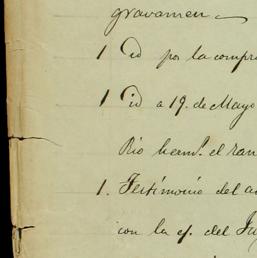 gravamen
1 Id por la compra
1 Id a 19. de Mayo
Rio herm.º el ran
1. Testimonio del a
con la ej. del Ju